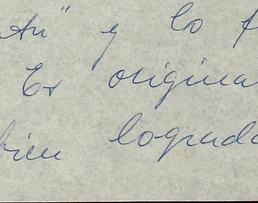 An" y lo f
Es origina
bien lograda